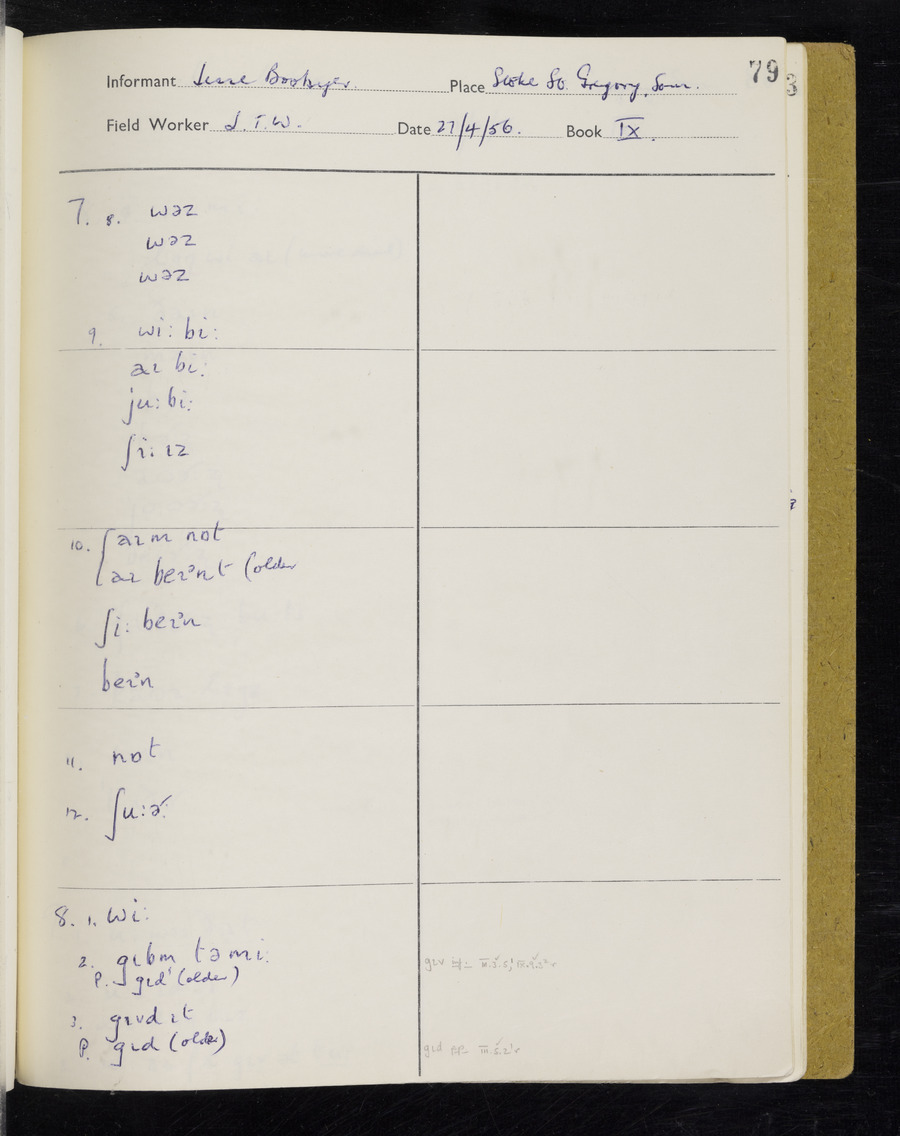 79
3
Informant Jesse Boobyer. Place Stoke St. Gregory, Som.
Field Worker J.T.W. Date 27/4/56. Book IX.
7. 8. wəz
wəz
wəz
9. wi: bi:
aɪ bi:
ju: bi:
ʃi: ɪz
10. aɪm nɒt
aɪ beɪənt (older
ʃi: beɪən
beɪən
11. nɒt
12. ʃu:ə˞:
8. 1. wi:
2. gɪbm tə mi:
P. gɪd (older)
3. gɪvd ɪt
P. gɪd (older)
gɪd pp. III.5.2